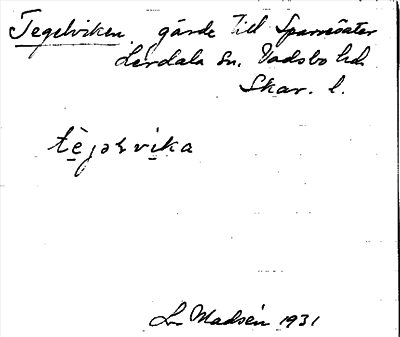 Tegelviken, gärde till Sparresäter
Lerdala sn. Vadsbo hd.
Skar. l.
tè̱jəɽvi̱ka
Madsén 1931